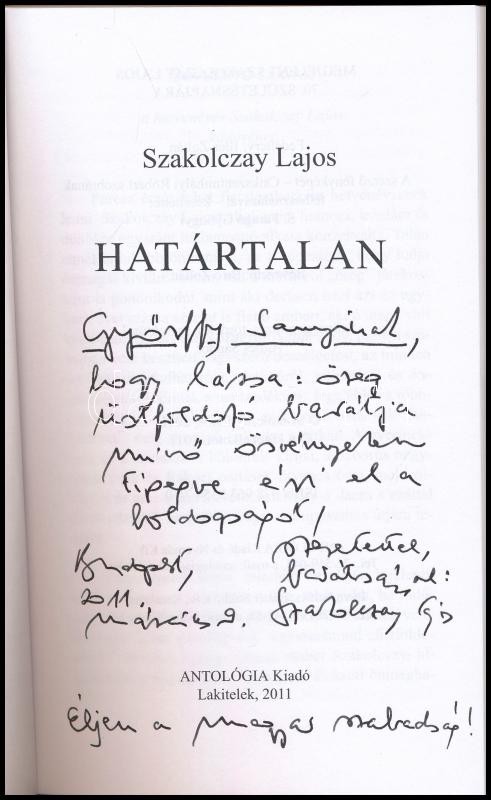 Szakolczay Lajos
HATÁRTALAN
Györffy Samunak,
hogy lássa: öreg
üstfoldozó barátja
minő ösvényeken
tipegve éri el a
boldogságot,
szeretettel,
barátsággal:
Szakolczay Lajos
Budapest,
2011.
március 9.
ANTOLÓGIA Kiadó
Lakitelek, 2011
Éljen a magyar szabadság!